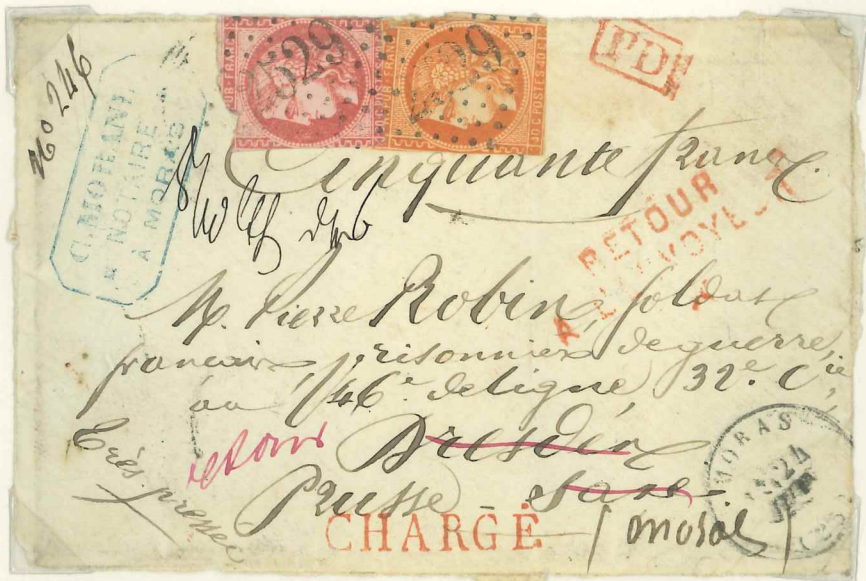 No 246
2529
PD
C. MORAND
NOTAIRE
A MORAS
Cinquante francs
RETOUR
A L'ENVOYEUR
M. Pierre Robin, soldat
français, prisonnier de guerre,
au 46e de ligne, 32e Cie,
retour
Dresden
Très pressée
Prusse Saxe
CHARGÉ
Moras
MORAS
24